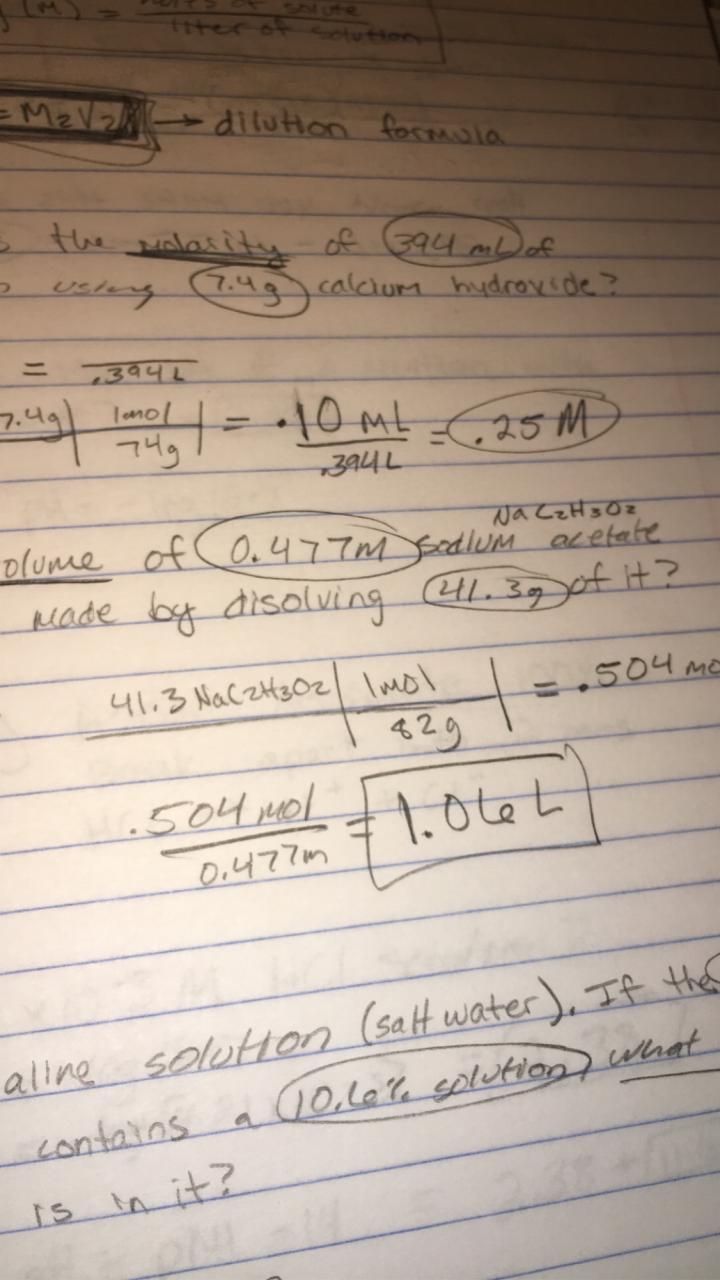 (M) = moles of solute
liter of solution
= M2V2 → dilution formula
the molarity of 394 mL of
using 7.4g calcium hydroxide?
= .394L
7.4g | 1mol | = .10 mL = .25 M
74g .394L
NaC2H3O2
olume of 0.477m sodium acetate
made by disolving 41.3g of it?
41.3 NaC2H3O2 | 1mol | = .504 mo
82g
.504 mol = 1.06 L
0.477m
aline solution (salt water). If the
contains a 10.6% solution, what
is in it?